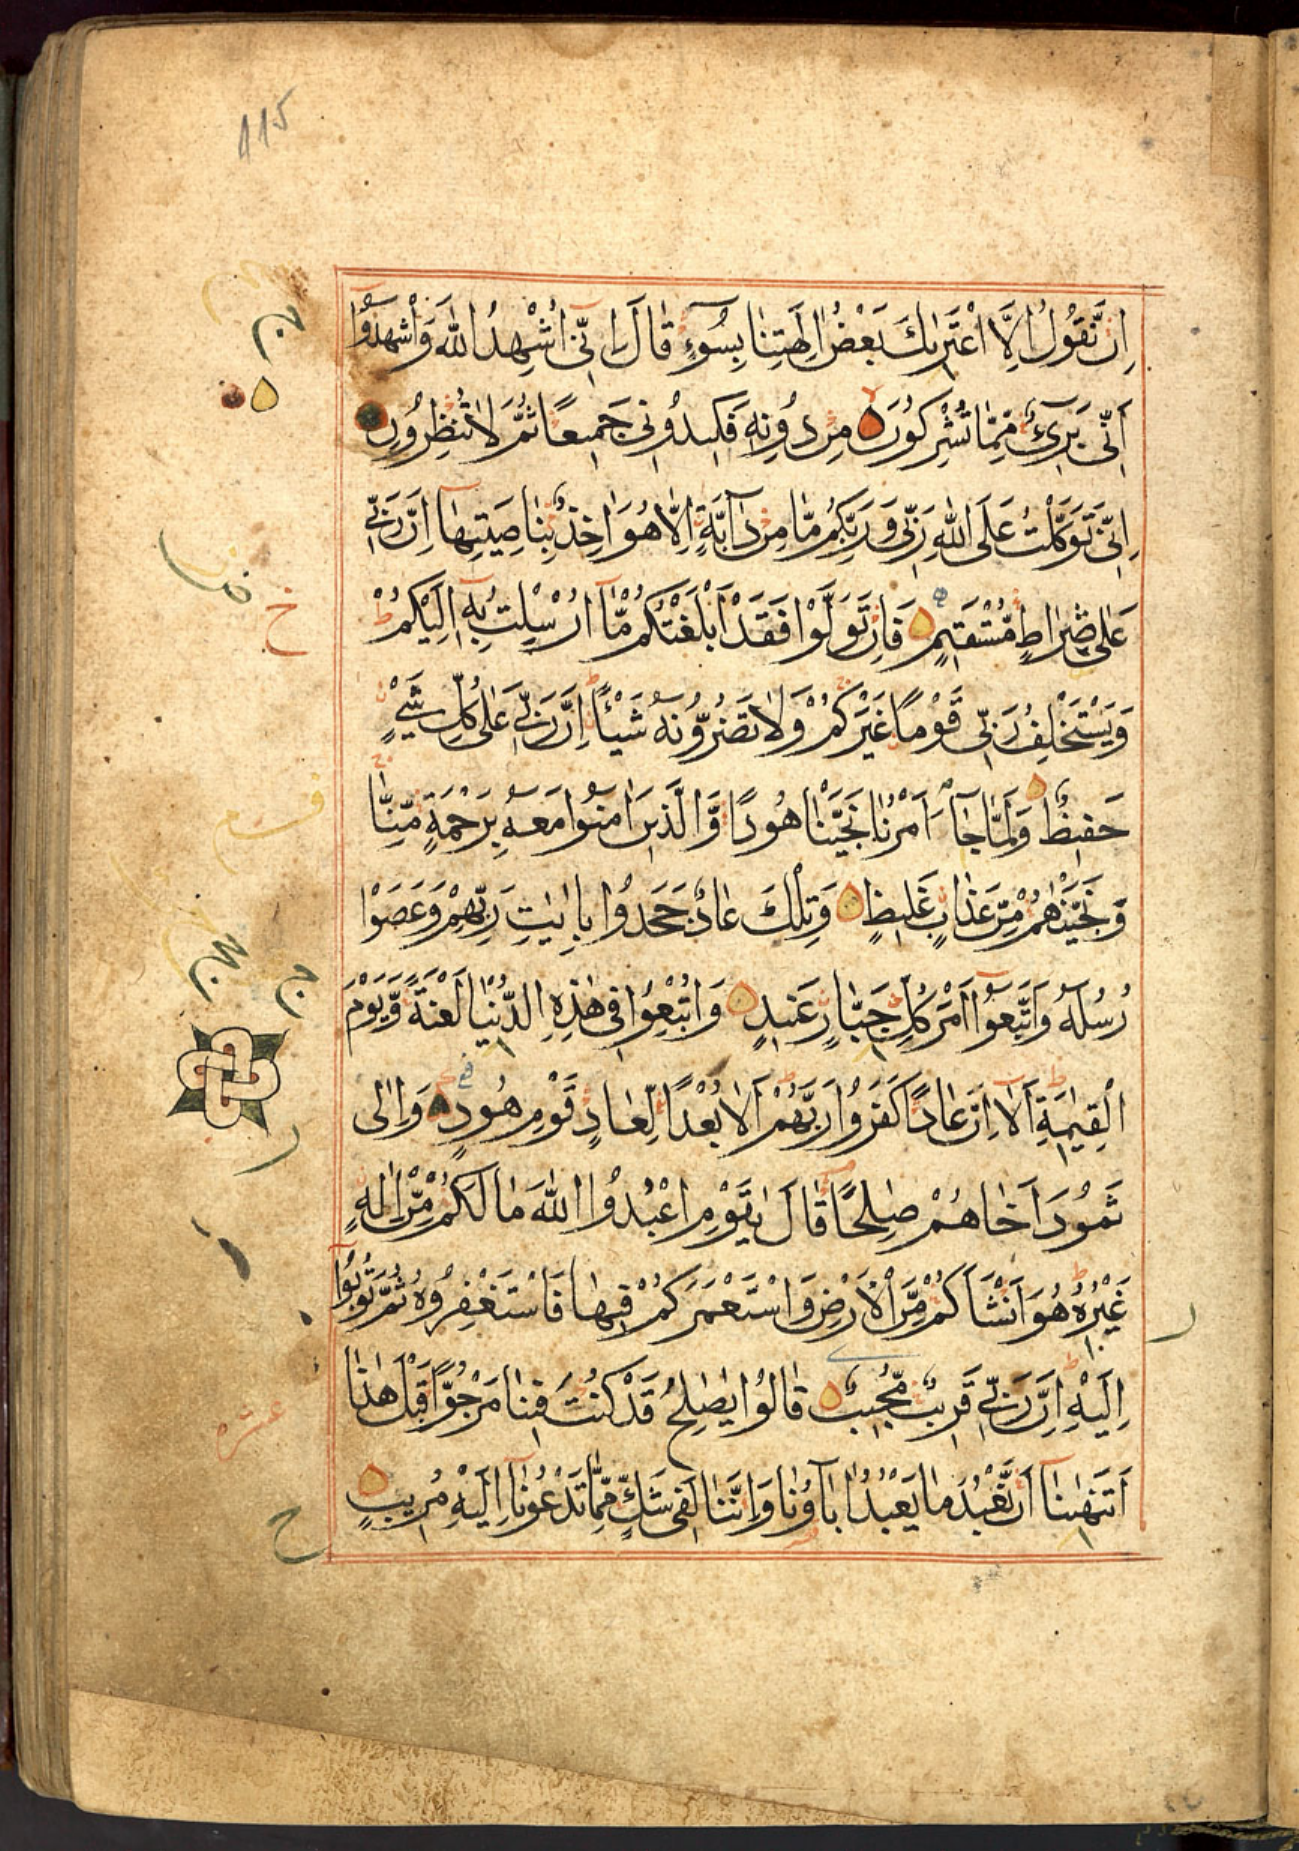 115
اِنْ نَقُولُ اِلَّا اعْتَرٰىكَ بَعْضُ اٰلِهَتِنَا بِسُوٓءٍ قَالَ اِنِّىٓ اُشْهِدُ اللّٰهَ وَاشْهَدُوٓا
اَنِّى بَرِىٓءٌ مِمَّا تُشْرِكُونَ مِنْ دُونِهٖ فَكِيدُونِى جَمِيعًا ثُمَّ لَا تُنْظِرُونِ
اِنِّى تَوَكَّلْتُ عَلَى اللّٰهِ رَبِّى وَرَبِّكُمْ مَّا مِنْ دَآبَّةٍ اِلَّا هُوَ اٰخِذٌ بِنَاصِيَتِهَا اِنَّ رَبِّى
عَلٰى صِرَاطٍ مُّسْتَقِيمٍ فَاِنْ تَوَلَّوْا فَقَدْ اَبْلَغْتُكُمْ مَّآ اُرْسِلْتُ بِهٖٓ اِلَيْكُمْ
وَيَسْتَخْلِفُ رَبِّى قَوْمًا غَيْرَكُمْ وَلَا تَضُرُّونَهٗ شَيْئًا اِنَّ رَبِّى عَلٰى كُلِّ شَىْءٍ
حَفِيظٌ وَلَمَّا جَآءَ اَمْرُنَا نَجَّيْنَا هُودًا وَّالَّذِينَ اٰمَنُوا مَعَهٗ بِرَحْمَةٍ مِّنَّا
وَنَجَّيْنٰهُمْ مِّنْ عَذَابٍ غَلِيظٍ وَتِلْكَ عَادٌ جَحَدُوا بِاٰيٰتِ رَبِّهِمْ وَعَصَوْا
رُسُلَهٗ وَاتَّبَعُوٓا اَمْرَ كُلِّ جَبَّارٍ عَنِيدٍ وَاُتْبِعُوا فِى هٰذِهِ الدُّنْيَا لَعْنَةً وَّيَوْمَ
الْقِيٰمَةِ اَلَآ اِنَّ عَادًا كَفَرُوا رَبَّهُمْ اَلَا بُعْدًا لِّعَادٍ قَوْمِ هُودٍ وَاِلٰى
ثَمُودَ اَخَاهُمْ صٰلِحًا قَالَ يٰقَوْمِ اعْبُدُوا اللّٰهَ مَا لَكُمْ مِّنْ اِلٰهٍ
غَيْرُهٗ هُوَ اَنْشَاَكُمْ مِّنَ الْاَرْضِ وَاسْتَعْمَرَكُمْ فِيهَا فَاسْتَغْفِرُوهُ ثُمَّ تُوبُوٓا
اِلَيْهِ اِنَّ رَبِّى قَرِيبٌ مُّجِيبٌ قَالُوا يٰصٰلِحُ قَدْ كُنْتَ فِينَا مَرْجُوًّا قَبْلَ هٰذَا
اَتَنْهٰينَآ اَنْ نَّعْبُدَ مَا يَعْبُدُ اٰبَآؤُنَا وَاِنَّنَا لَفِى شَكٍّ مِّمَّا تَدْعُونَآ اِلَيْهِ مُرِيبٍ